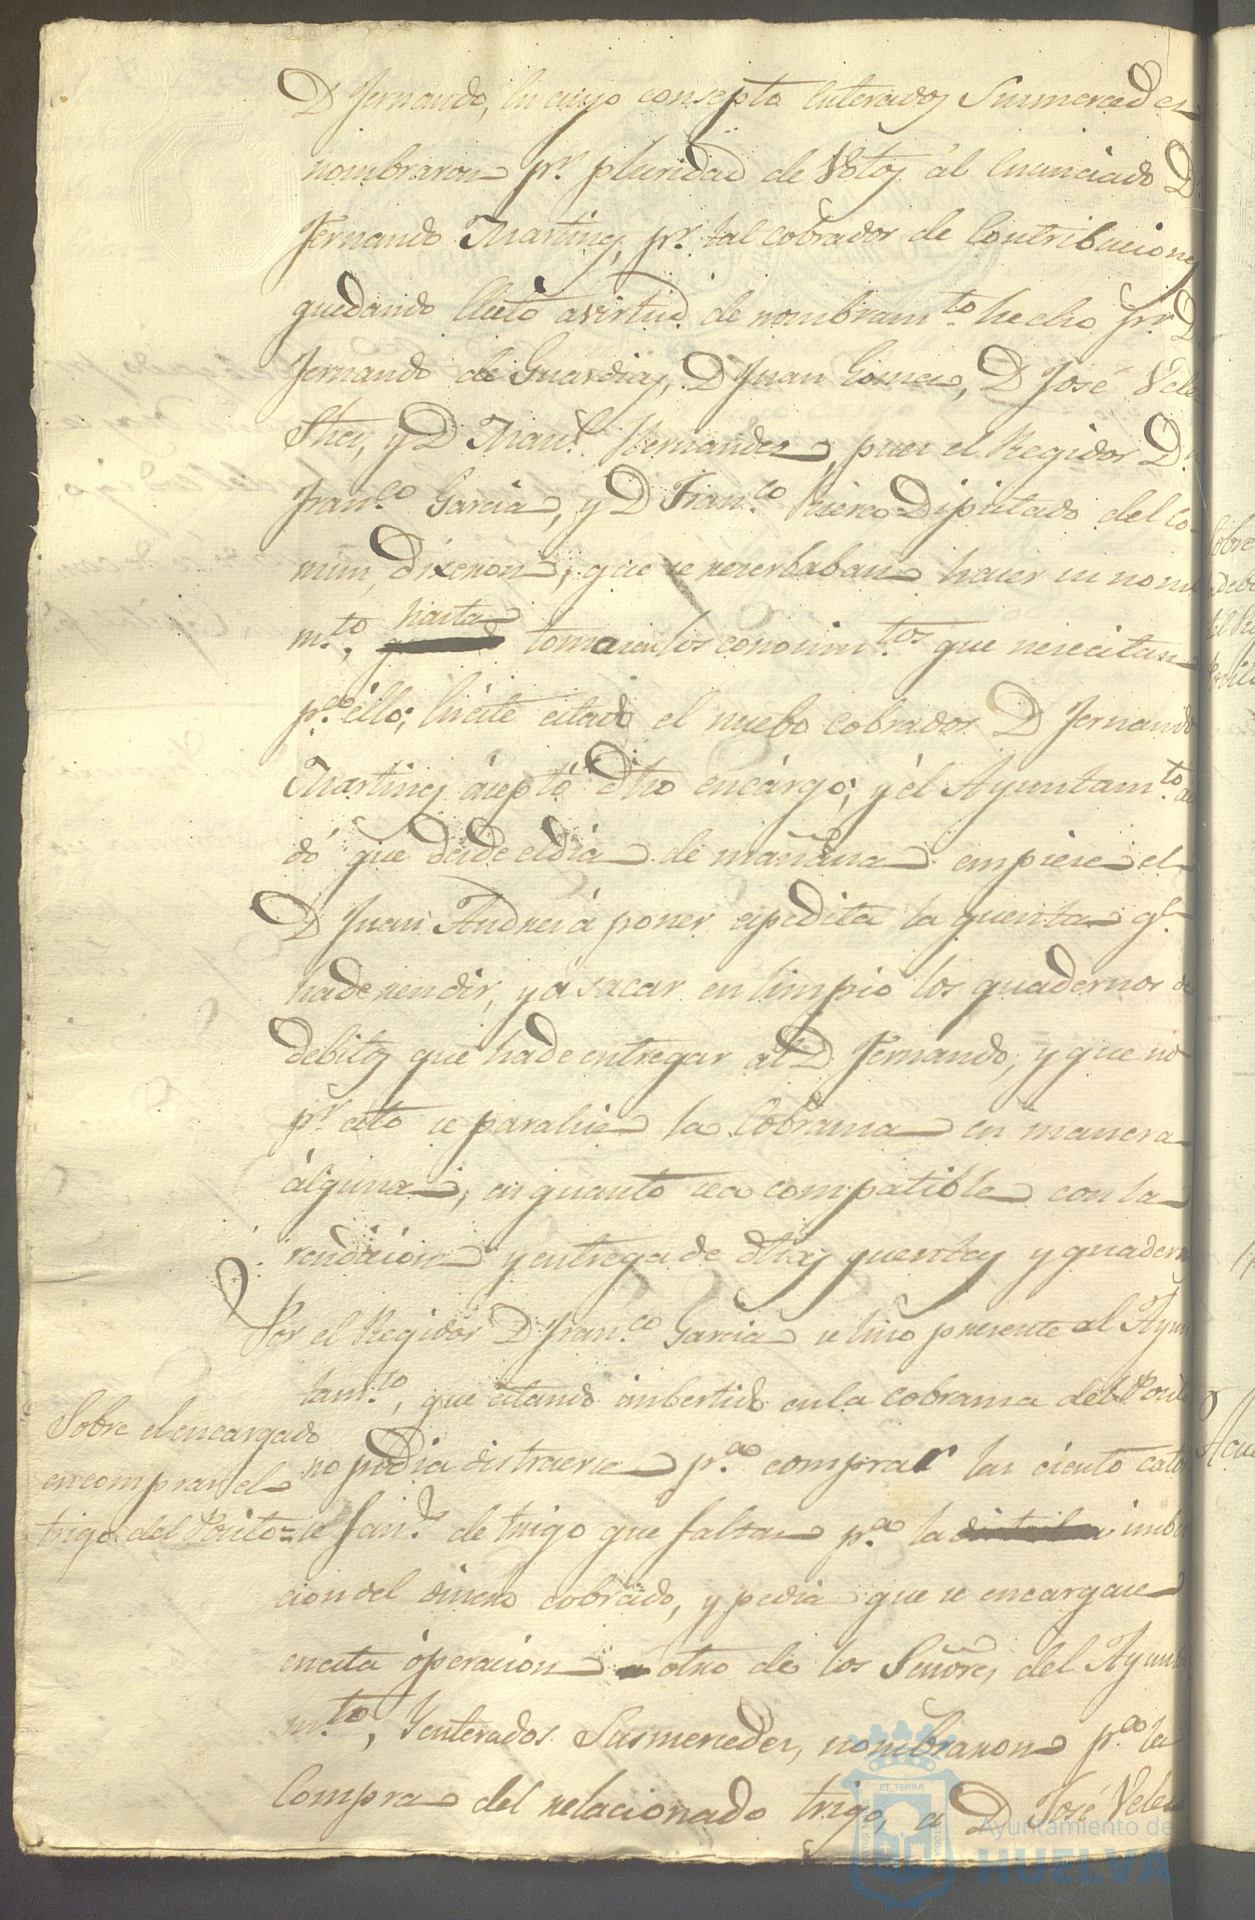 D Fernando, en cuyo consepto enterados Susmercedes
nombraron pr. pluridad de Votos al enunciado D.
Fernando Martines, pr. tal cobrador de Contribuciones
quedando electo a virtud de nombram.to hecho pr. D
Fernando de Guardias, D Juan Gomes, D José Vele
Shes, y D Man.l Hernandes, pues el Regidor D.n
Fran.co Garcia, y D Fran.co Diputado del Co-
mun, dixeron, que se reserbaban hacer su nom
m.to, hasta tomar los conosim.tos que nesecitan
p.a éllo; en éste estado el nuebo cobrador D Fernando
Martines áceptó dho encárgo; y él Ayuntam.to
dó que desde el dia de mañana empiese el
D Juan Andres á poner espedita la quenta q.e
ha de rendir, y á sacar en limpio los quadernos de
debitos que ha de entregar al D Fernando, y que no
pr. esto se paralise la Cobransa en manera
álguna, en quanto sea compatible con la
rendicion y entrega de dhas quentas y quadern
Por el Regidor D Fran.co Garcia se hiso presente al Ayun
tam.to, que estando imbertido en la cobransa del Posito
Sobre el encargado
en comprar el
trigo del Posito=
no podia distraerse p.a comprar las ciento cator
se fan.s de trigo que faltan p.a la imber
cion del dinero cobrado, y pedia que se encargase
en esta óperacion otro de los Señores del Ayunta
m.to, Y enterados Susmercedes, nombraron p.a la
Compra del relacionado trigo, a D José Veles
Sobre
Acu
ET TERRÆ
Ayuntamiento de
HUELVA